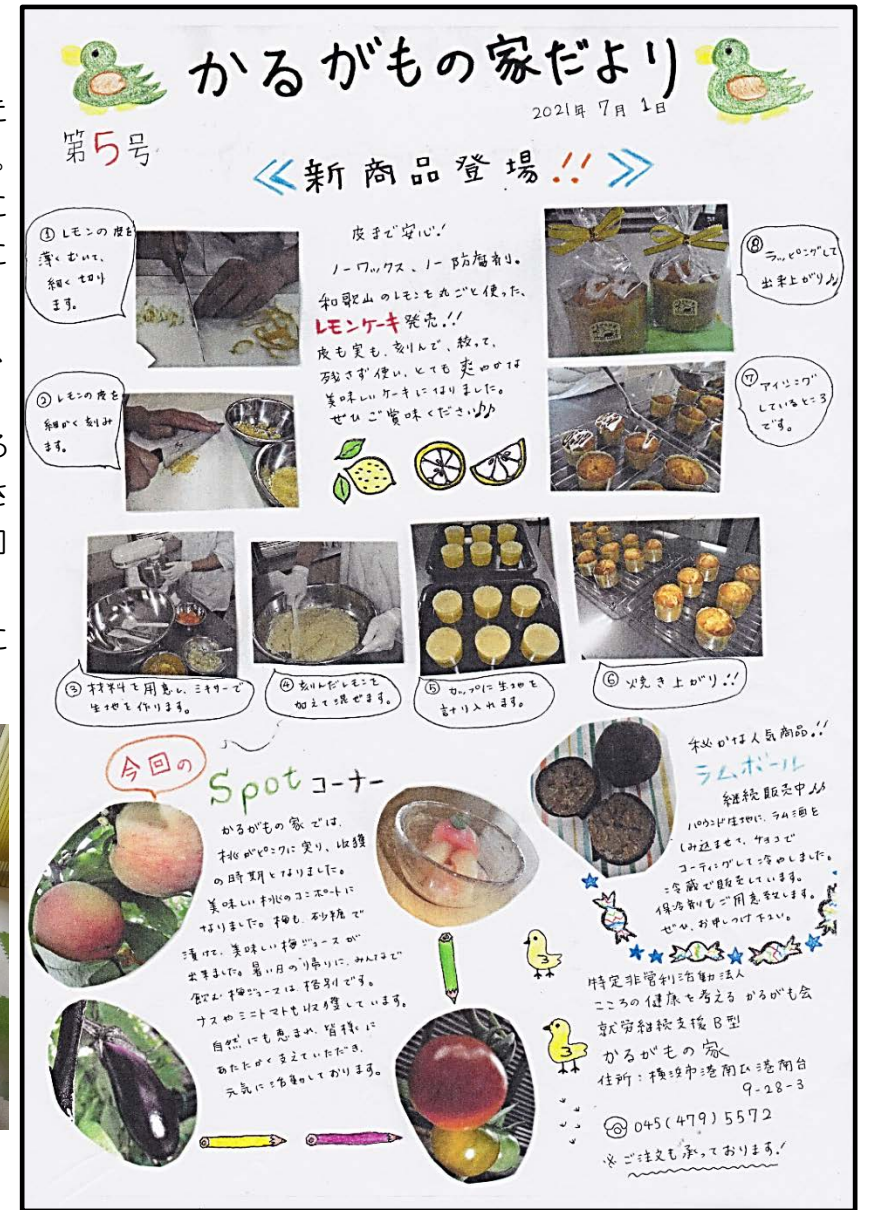 かるがもの家だより
2021年 7月 1日
第5号
≪新商品登場!!≫
① レモンの皮を
薄くむいて、
細く切り
ます。
② レモンの皮を
細かく刻み
ます。
皮まで安心!
ノーワックス、ノー防腐剤。
和歌山のレモンを丸ごと使った、
レモンケーキ発売!!
皮も実も、刻んで、絞って、
残さず使い、とても爽やかな
美味しいケーキになりました。
ぜひご賞味ください♪♪
⑧ ラッピングして
出来上がり♪♪
⑦ アイシング
しているところ
です。
③ 材料を用意し、ミキサーで
生地を作ります。
④ 刻んだレモンを
加えて混ぜます。
⑤ カップに生地を
計り入れます。
⑥ 焼き上がり!!
今回の
Spotコーナー
かるがもの家では、
桃がピンクに実り、収穫
の時期となりました。
美味しい桃のコンポートに
なりました。梅も、砂糖で
漬けて、美味しい梅ジュースが
出来ました。暑い日の帰りに、みんなで
飲む梅ジュースは、格別です。
ナスやミニトマトも収穫しています。
自然にも恵まれ、皆様に
あたたかく支えていただき、
元気に活動しております。
秘かな人気商品!!
ラムボール
継続販売中♪♪
パウンド生地に、ラム酒を
しみ込ませて、チョコで
コーティングして冷やしました。
冷蔵で販売しています。
保冷剤もご用意致します。
ぜひ、お申しつけ下さい。
特定非営利活動法人
こころの健康を考える かるがも会
就労継続支援B型
かるがもの家
住所:横浜市港南区港南台
9-28-3
☎ 045(479)5572
※ご注文も承っております!